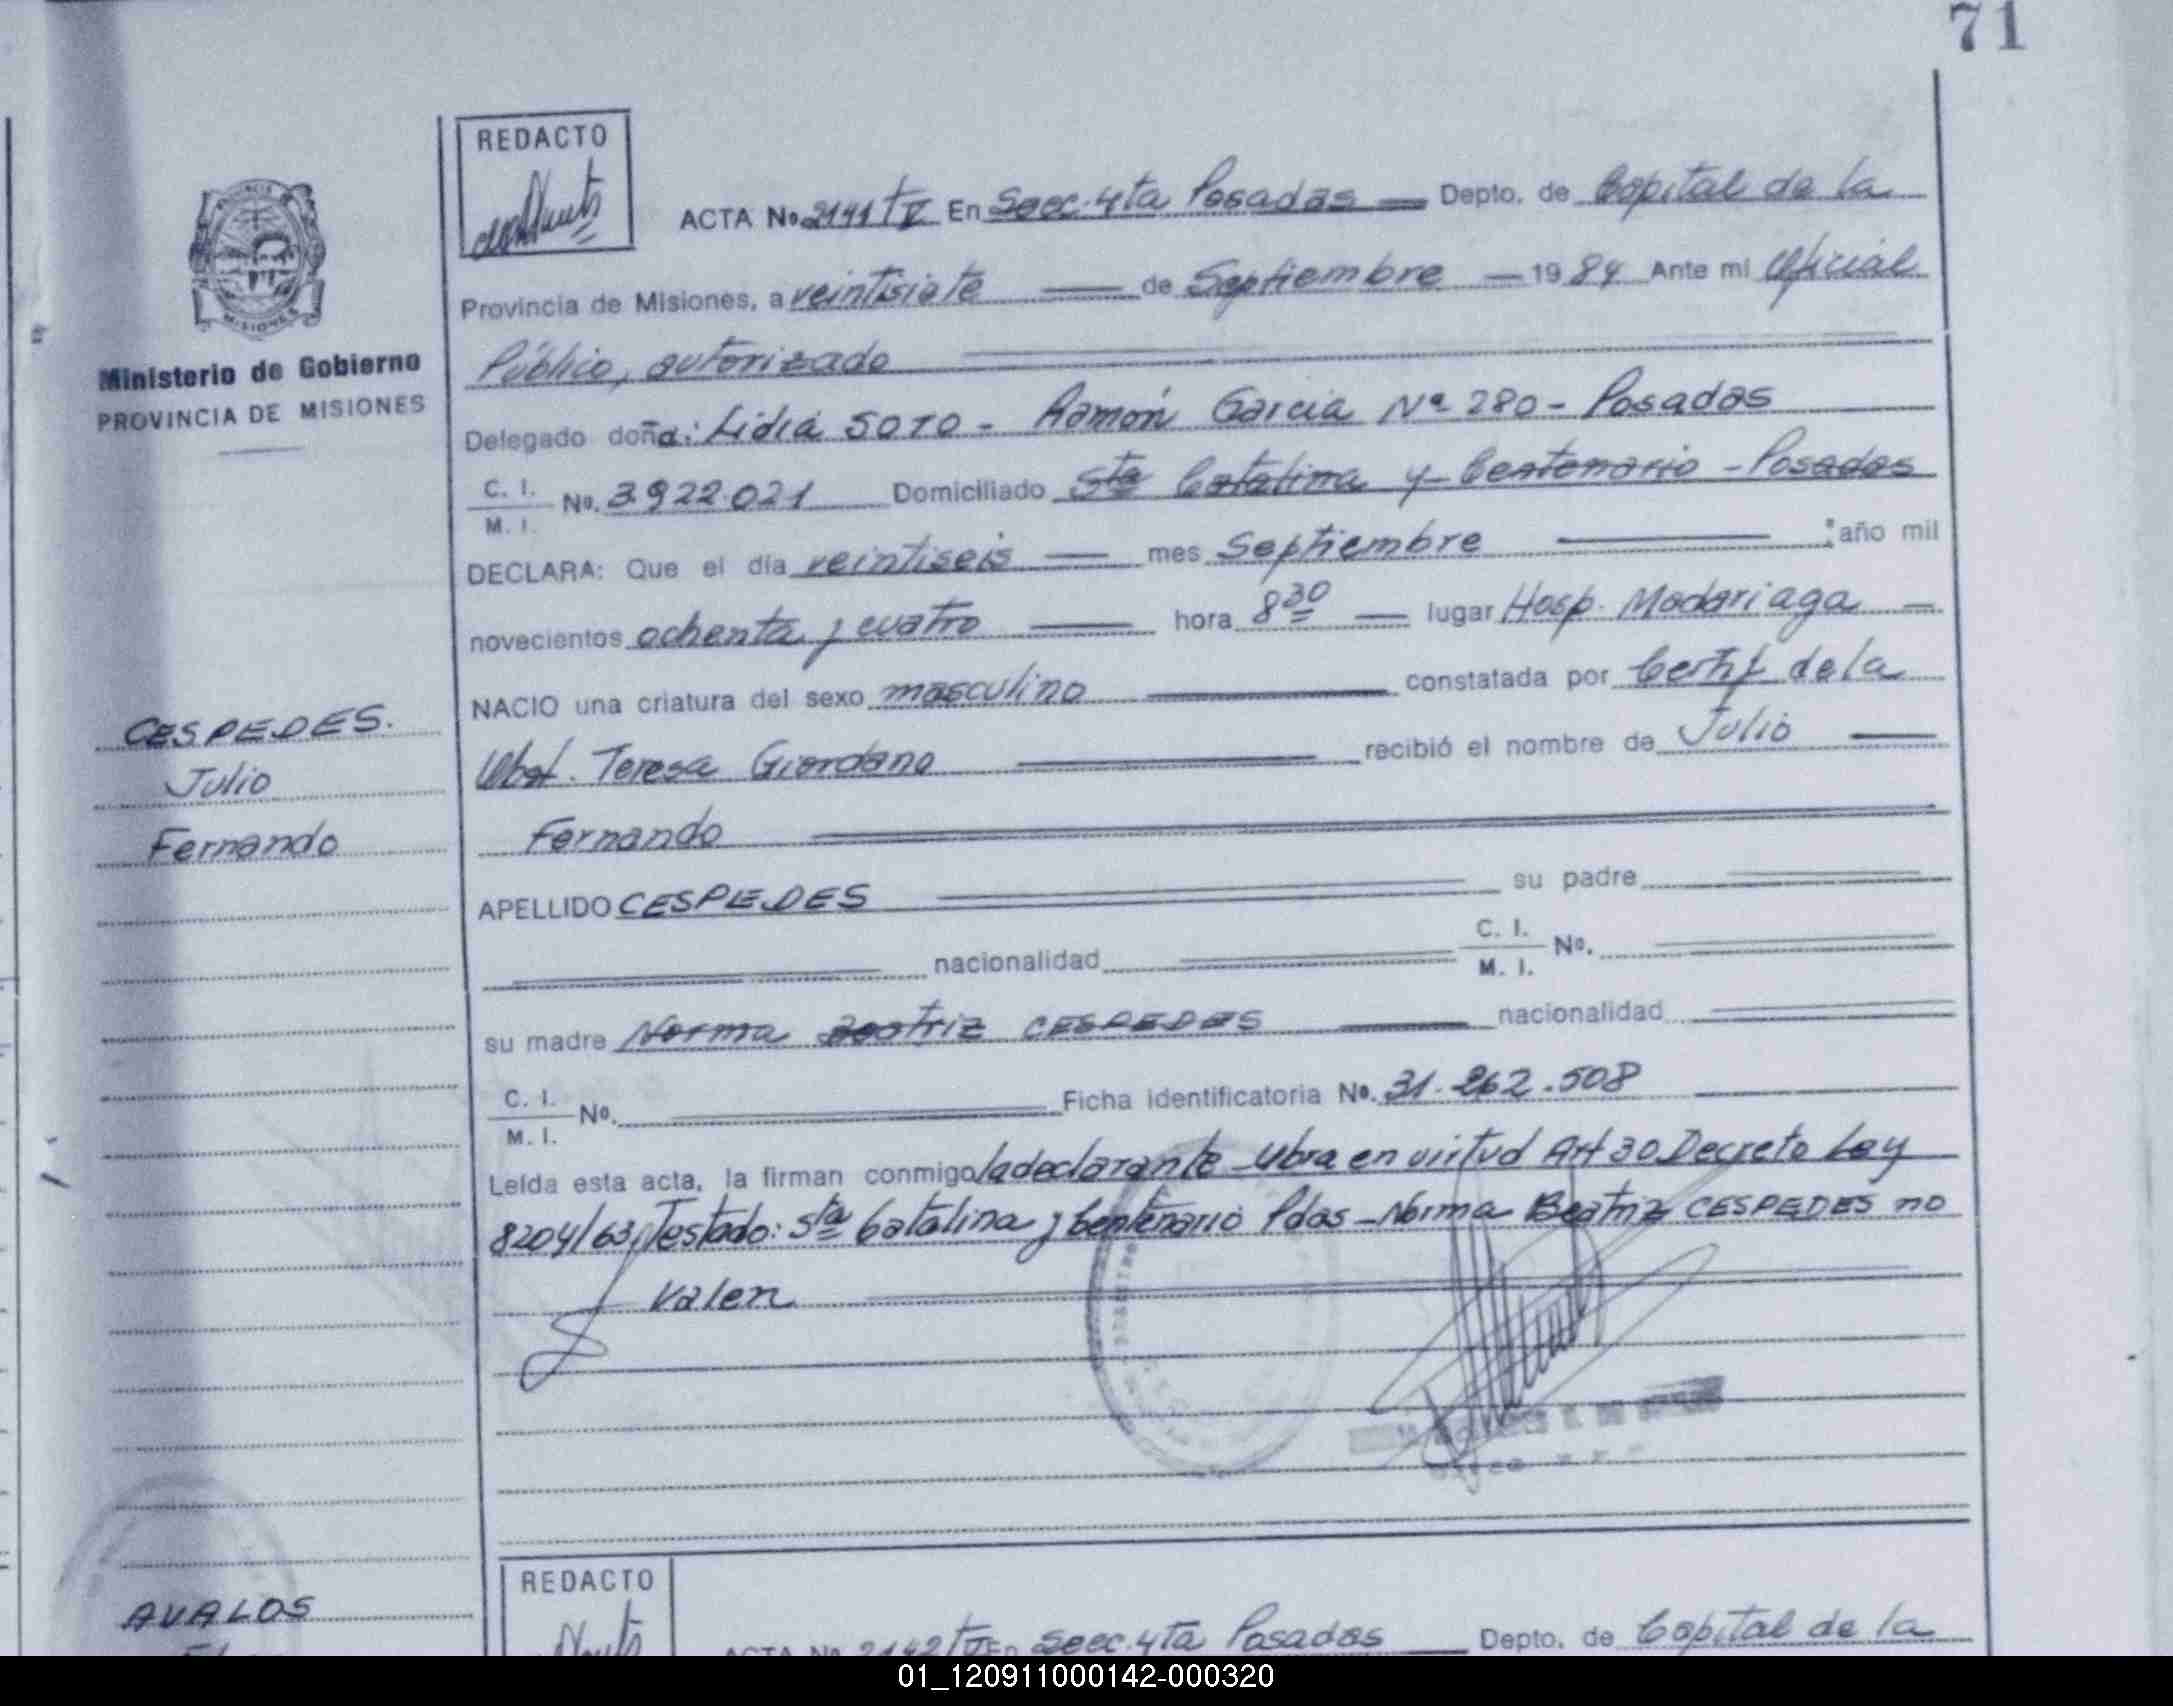 71
REDACTO
ACTA No. 2141 tV En Secc. 4ta Posadas Depto. de Capital de la
Provincia de Misiones, a veintisiete de Septiembre 1984 Ante mi Oficial
Público, autorizado
Ministerio de Gobierno
PROVINCIA DE MISIONES
Delegado doña: Lidia SOTO - Ramón Garcia Nº 280 - Posadas
C. I.
M. I.
No. 3.922.021 Domiciliado Sta Catalina y Centenario - Posadas
DECLARA: Que el día veintiseis mes Septiembre año mil
novecientos ochenta y cuatro hora 8 30 lugar Hosp. Madariaga
NACIO una criatura del sexo masculino constatada por Certif de la
Obst. Teresa Giordano recibió el nombre de Julio
Fernando
CESPEDES.
Julio
Fernando
APELLIDO CESPEDES su padre
nacionalidad C. I.
M. I. No.
su madre Norma Beatriz CESPEDES nacionalidad
C. I.
M. I. No. Ficha identificatoria No. 31.262.508
Leída esta acta, la firman conmigo la declarante Obra en virtud Art 30 Decreto Ley
8204/63, Testado: Sta Catalina y Centenario Pdas - Norma Beatriz CESPEDES no
valen
REDACTO
AVALOS
ACTA No. 2142 tV En Secc. 4ta Posadas Depto. de Capital de la
01_120911000142-000320